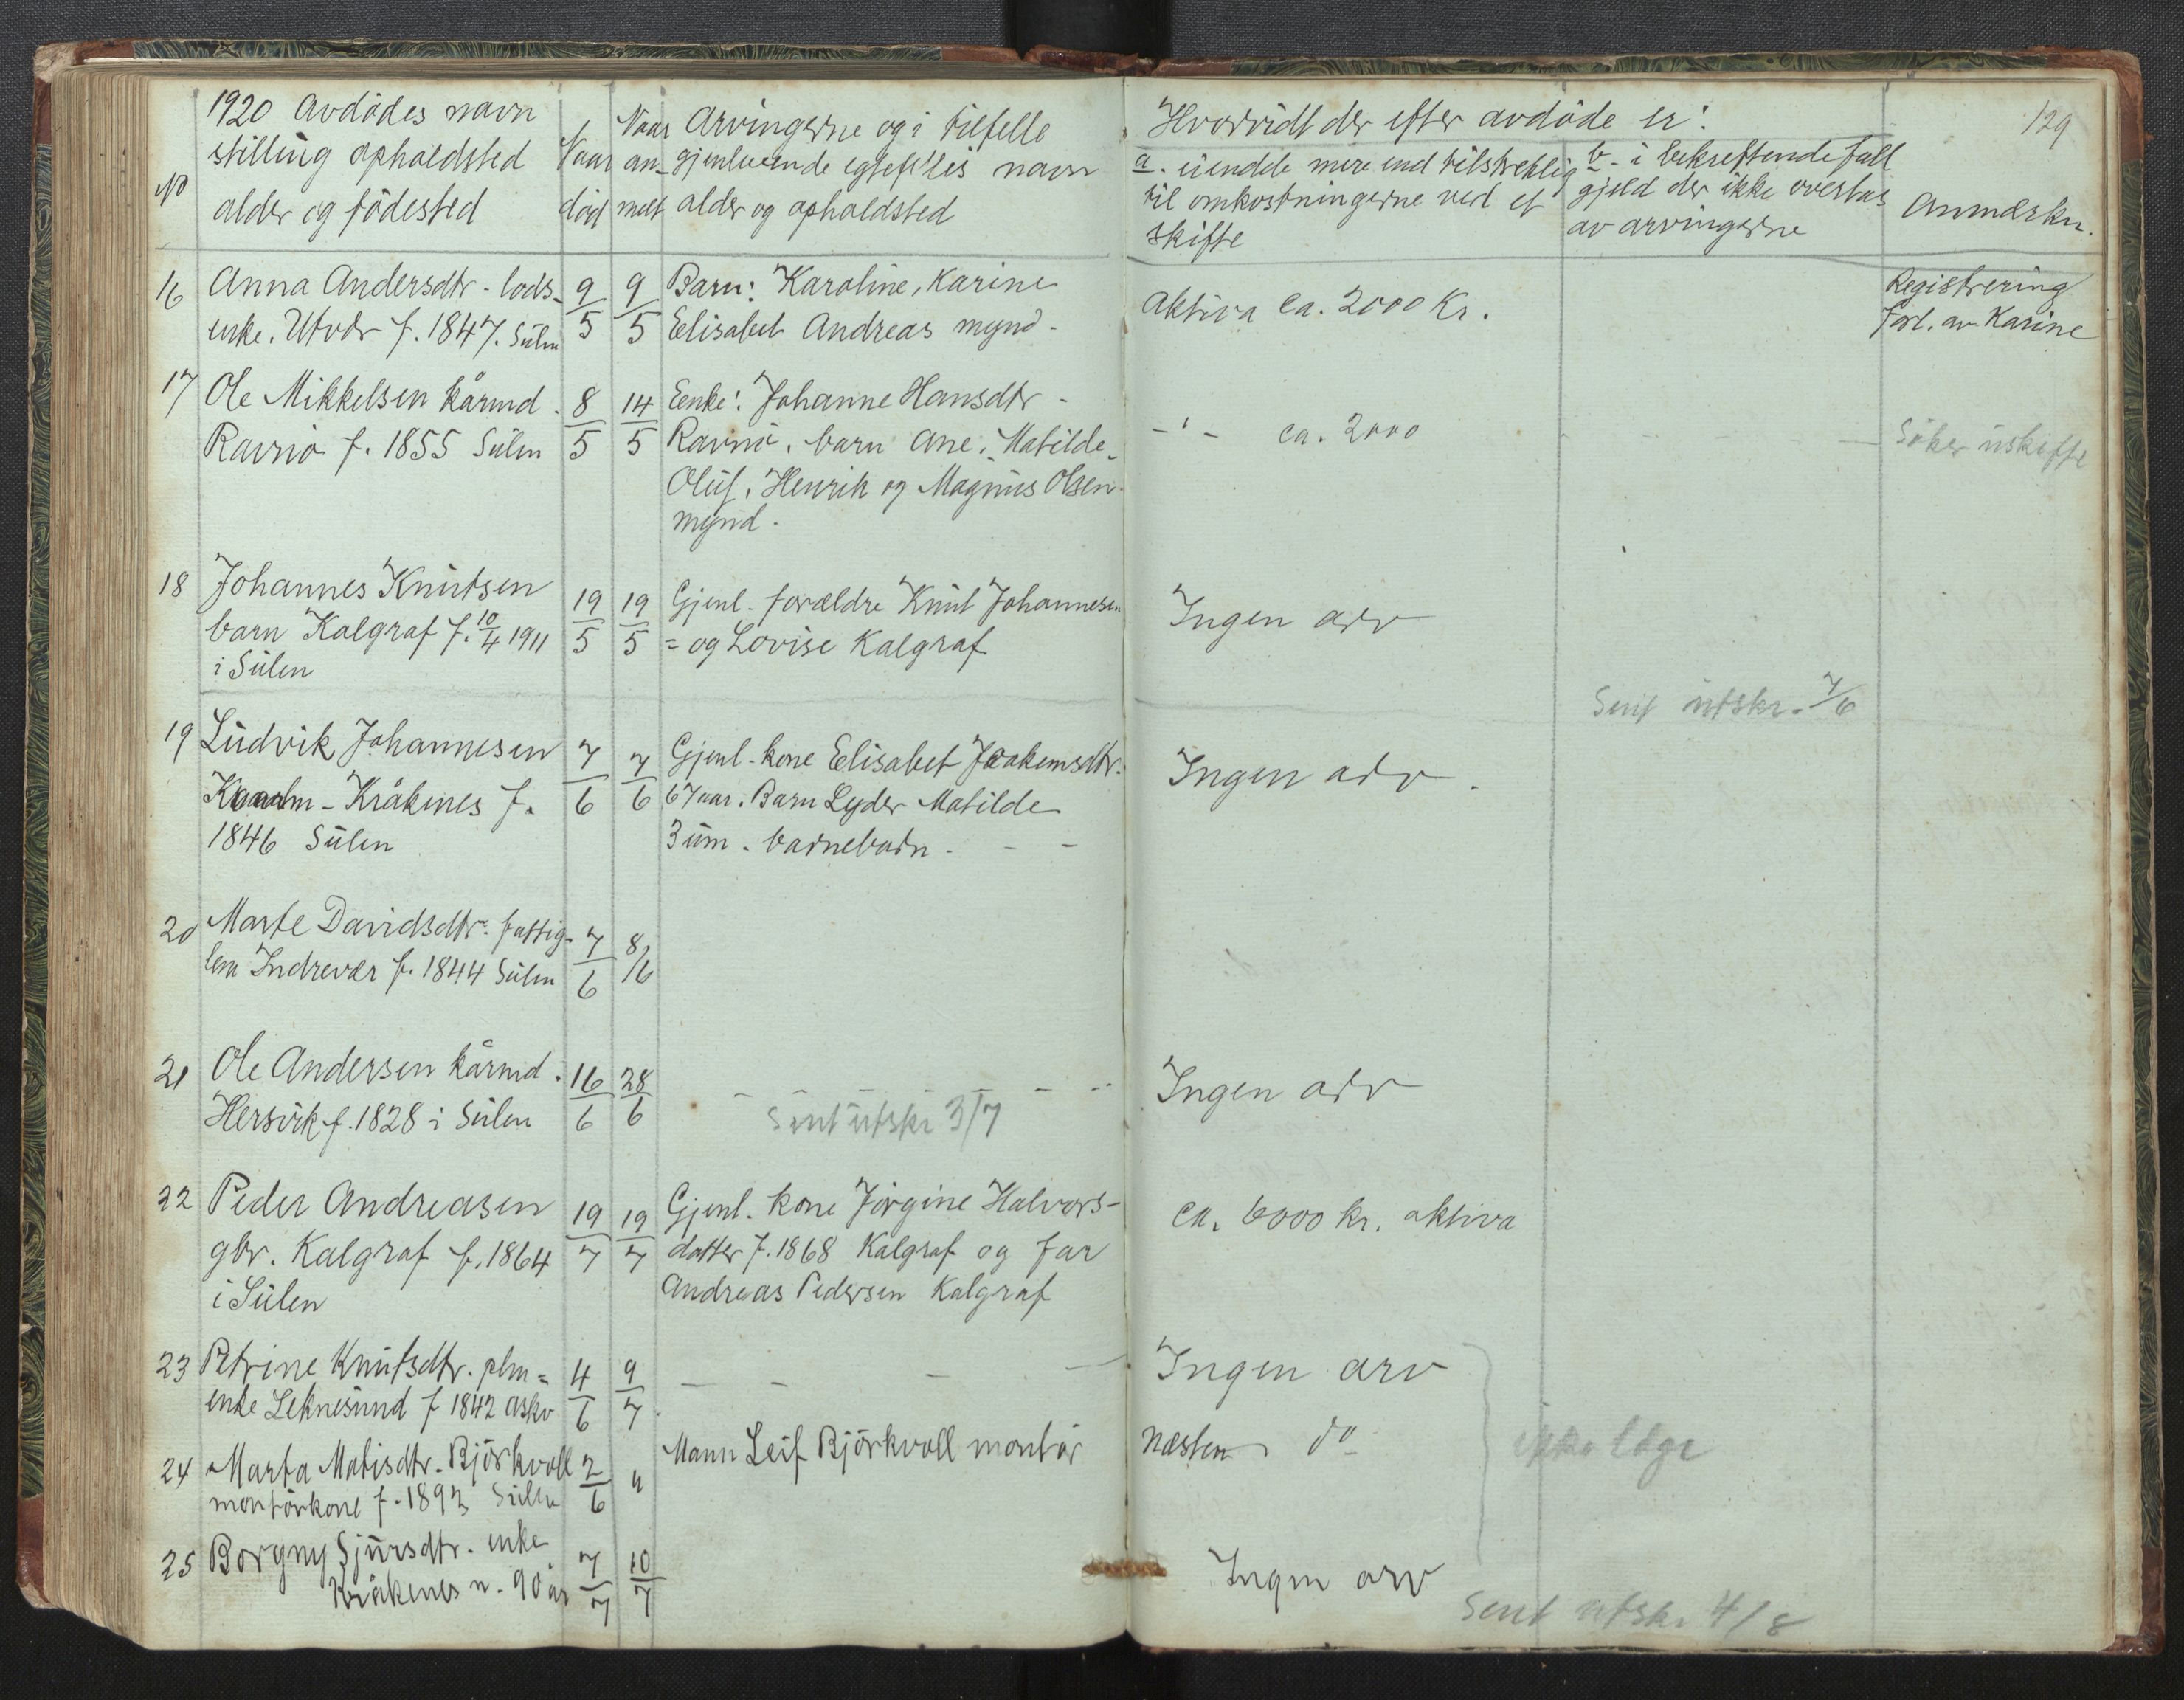 129
No
1920 Avdödes navn
stilling opholdsted
alder og födested
Naar
död
Naar
an-
melt
Arvingerne og i tilfelle
gjenlevende egtefelles navn
alder og opholdsted
Hvorvidt der efter avdöde er:
a. eiendele mere end tilstrekkelig
til omkostningerne ved et
skifte
b. i bekreftende fall
gjeld der ikke overtas
av arvingerne
Anmerkn.
16 Anna Andersdtr - lods- 9/5 9/5 Barn: Karoline, Karine
enke. Utvær f. 1847. Sulen Elisabet Andreas mynd.
Aktiva ca. 2000 Kr.
Registrering
forl. av Karine
17 Ole Mikkelsen kårmd. 8/5 14/5 Eenke: Johanne Hansdtr -
Ravnö f. 1855 Sulen Ravnö. barn Ane. Matilde
Oluf, Henrik og Magnus Olsen
mynd.
-"- ca. 2000
Söker uskifte
18 Johannes Knutsen 19/5 19/5 Gjenl. forældre Knut Johannesen
barn Kalgraf f. 10/4 1911 = og Lovise Kalgraf
i Sulen
Ingen arv
Sent utskr. 7/6
19 Ludvik Johannesen 7/6 7/6 Gjenl. kone Elisabet Joakemsdtr.
Kråkenes f. 67 aar. Barn Lyder Matilde
1846 Sulen 3 um. barnebarn - - -
Ingen arv.
20 Marte Davidsdtr. fattig- 7/6 8/6
lem Indrevær f. 1844 Sulen
21 Ole Andersen kårmd. 16/6 28/6 - - - - - -
Hersvik f. 1828 i Sulen
Sent utskr 3/7
Ingen arv
22 Peder Andreasen 19/7 19/7 Gjenl. kone Jörgine Halvors-
gbr. Kalgraf f. 1864 datter f. 1868 Kalgraf og far
i Sulen Andreas Pedersen Kalgraf
ca. 6000 kr. aktiva
23 Petrine Knutsdtr. plm= 4/6 9/7 - - - -
enke Leknesund f 1842 Askv
Ingen arv
24 Marta Matisdtr. Björkvoll 2/6 " Mann Leif Björkvoll montör
montörkone f. 1893 Sulen
Næsten do
ikke læge
25 Borgny Sjursdtr. enke 7/7 10/7
Kråkenes n. 90 år
Ingen arv
Sent utskr 4/8